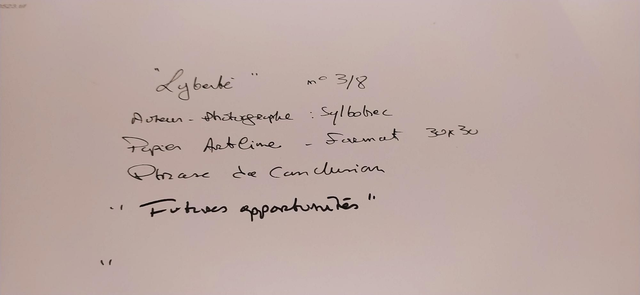 "Lyberté" n° 3/8
Auteur-Photographe : Sylbohec
Papier Artline - Format 30x30
Phrase de Conclusion
"Futures opportunités"
"